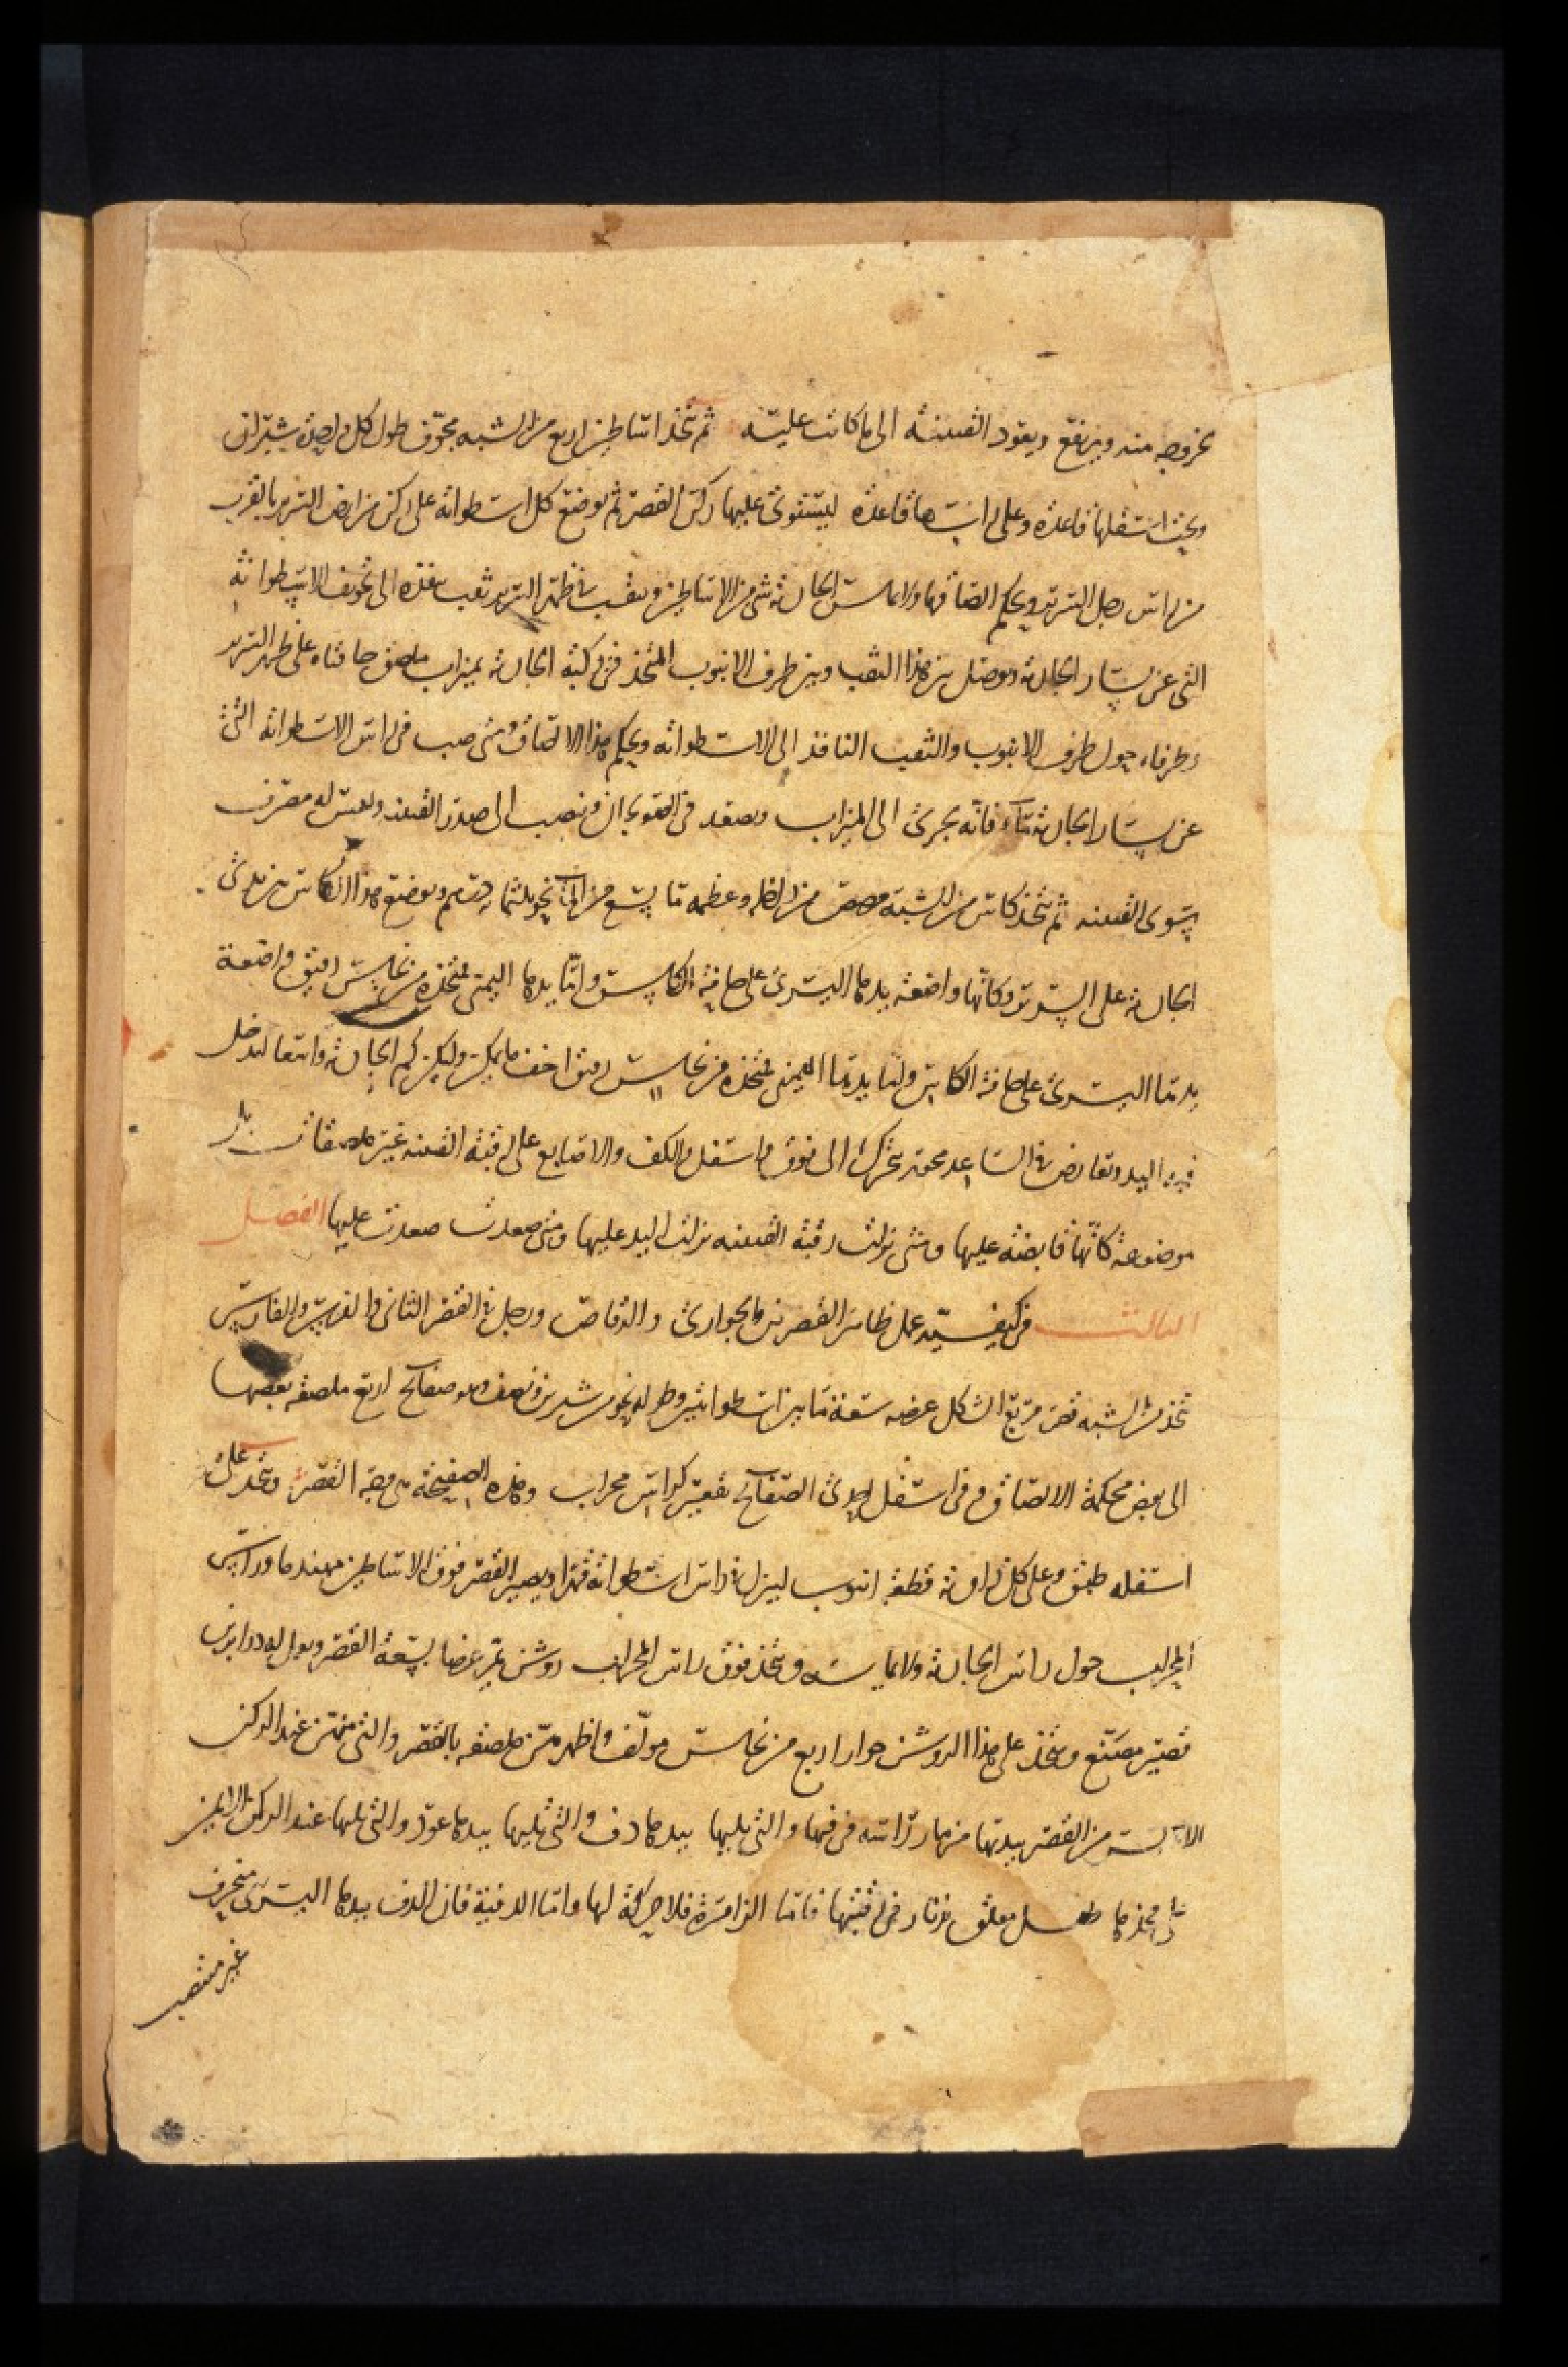 بخروجه منه ويرتفع ويعود القنينة الى ما كانت عليه ثم تتخذ اساطين اربع من الشبه مجوف طول كل واحدة شبران
وتحت اسفلها قاعدة وعلى راسها قاعدة ليستوى عليها ركن القصر ثم يوضع كل اسطوانة على ركن من ارض السرير بالقرب
من راس رجل السرير ويحكم الصاقها ولا يماس الجارية شئ من الاساطين ويثقب فى ظهر السرير ثقب ينفذ الى تجويف الاسطوانة
التى عن يسار الجارية ويوصل بين هذا الثقب وبين طرف الانبوب المتخذ فى ركبة الجارية بميزاب ملصق حافتاه على ظهر السرير
وطرفاه حول طرف الانبوب والثقب النافذ الى الاسطوانة ويحكم هذا الالصاق ومتى صب فى راس الاسطوانة التى
عن يسار الجارية ماء فانه يجرى الى الميزاب ويصعد فى ويصب الى صدر القنينة وليس له مصرف
سوى القنينة ثم تتخذ كاس من الشبه وعظمه ما يسع من الماء نحو ثلثمائة درهم ويوضع هذا الكاس بين يدى
الجارية على السرير وكانها واضعة يدها اليسرى على حافة الكاس واما يدها اليمنى متخذة من نحاس رقيق واضعة
يدها اليسرى على حافة الكاس واما يدها اليمنى متخذة من نحاس رقيق اخف ما يمكن وليكن كم الجارية واسعا ليدخل
فيه اليد وتعارض فى الساعد محور يتحرك الى فوق واسفل والكف والاصابع على رقبة القنينة غير ملصقات بل
موضوعة كانها قابضة عليها ومتى نزلت رقبة القنينة نزلت اليد عليها ومتى صعدت صعدت عليها الفصل
الثالث فى كيفية عمل ظاهر القصرين والجوارى والرقاص ورجل فى القصر الثانى والفرس والفارس
تتخذ من الشبه قصر مربع الشكل عرضه سعة ما بين اسطوانتين وطوله نحو من شبرين ونصف وهو صفائح اربع ملصقة بعضها
الى بعض محكمة الالصاق وفى اسفل احدى الصفائح تقعير كراس محراب وهذه الصفيحة هى وجه القصر وتتخذ على
اسفله طبق وعلى كل زاوية قطعة انبوب لينزل فى راس اسطوانة قهرا ويصير القصر فوق الاساطين مهندما وراس
المحراب حول راس الجارية ولا يماسه ويتخذ فوق راس المحراب روشن يمر عرضا بسعة القصر ويعمل له درابزين
قصير مصنع ويتخذ على هذا الروشن جوار اربع من نحاس مولف واظهرهن ملصقة بالقصر والتى منهن عند الركن
الايسر من القصر بيديها مزمار راسه فى فمها والتى يليها بيدها دف والتى تليها بيدها عود والتى تليها عند الركن الايمن
على فخذها طبل معلق بزنار فى رقبتها فاما الزامرة فلا حركة لها واما الدفية فان الدف بيدها اليسرى منحرف
غير منتصب